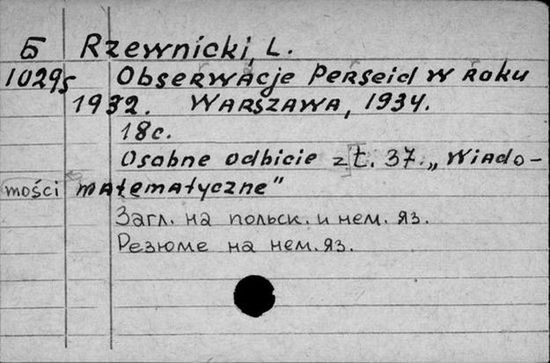 Б Rzewnicki, L.
10295 Obserwacje Perseid w roku
1932. Warszawa, 1934.
18с.
Osobne odbicie z t. 37. „Wiado-
mości matematyczne”
Загл. на польск. и нем. яз.
Резюме на нем. яз.